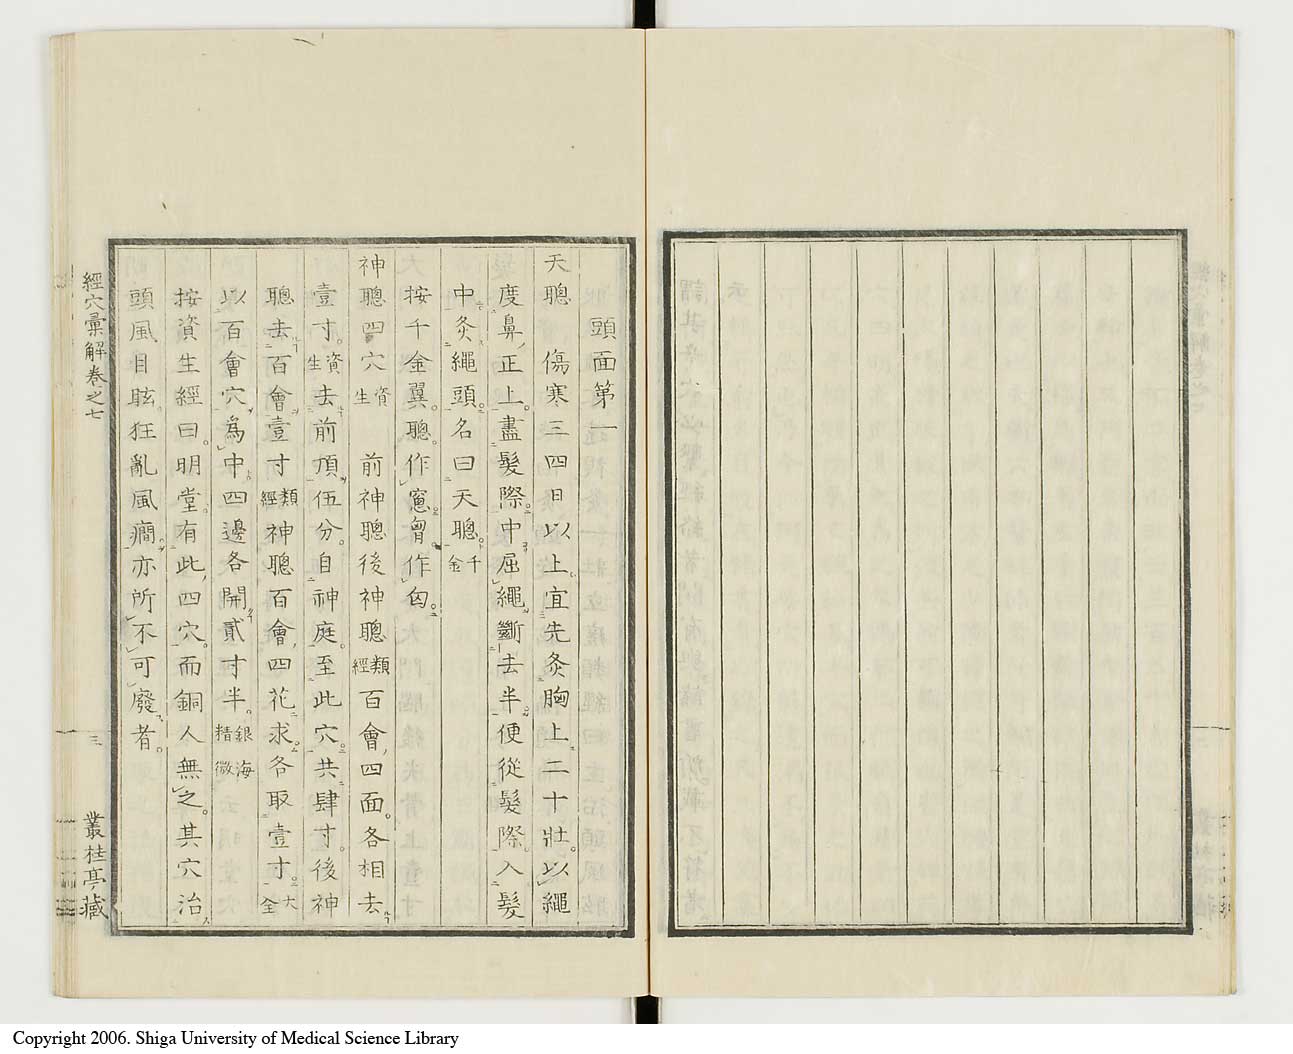 頭面第一
天聰　傷寒三四日以上宜先灸胸上二十壯以繩
度鼻正上盡髮際中屈繩斷去半便從髮際入髮
中灸繩頭名曰天聰千金
按千金翼聰作窻曾作匈
神聰四穴資生　前神聰後神聰類經百會四面各相去
壹寸資生去前頂伍分自神庭至此穴共肆寸後神
聰去百會壹寸類經神聰百會四花求各取壹寸大全
以百會穴爲中四邊各開貳寸半銀海精微
按資生經曰明堂有此四穴而銅人無之其穴治
頭風目眩狂亂風癇亦所不可廢者
經穴彙解卷之七
三
叢桂亭藏
Copyright 2006. Shiga University of Medical Science Library